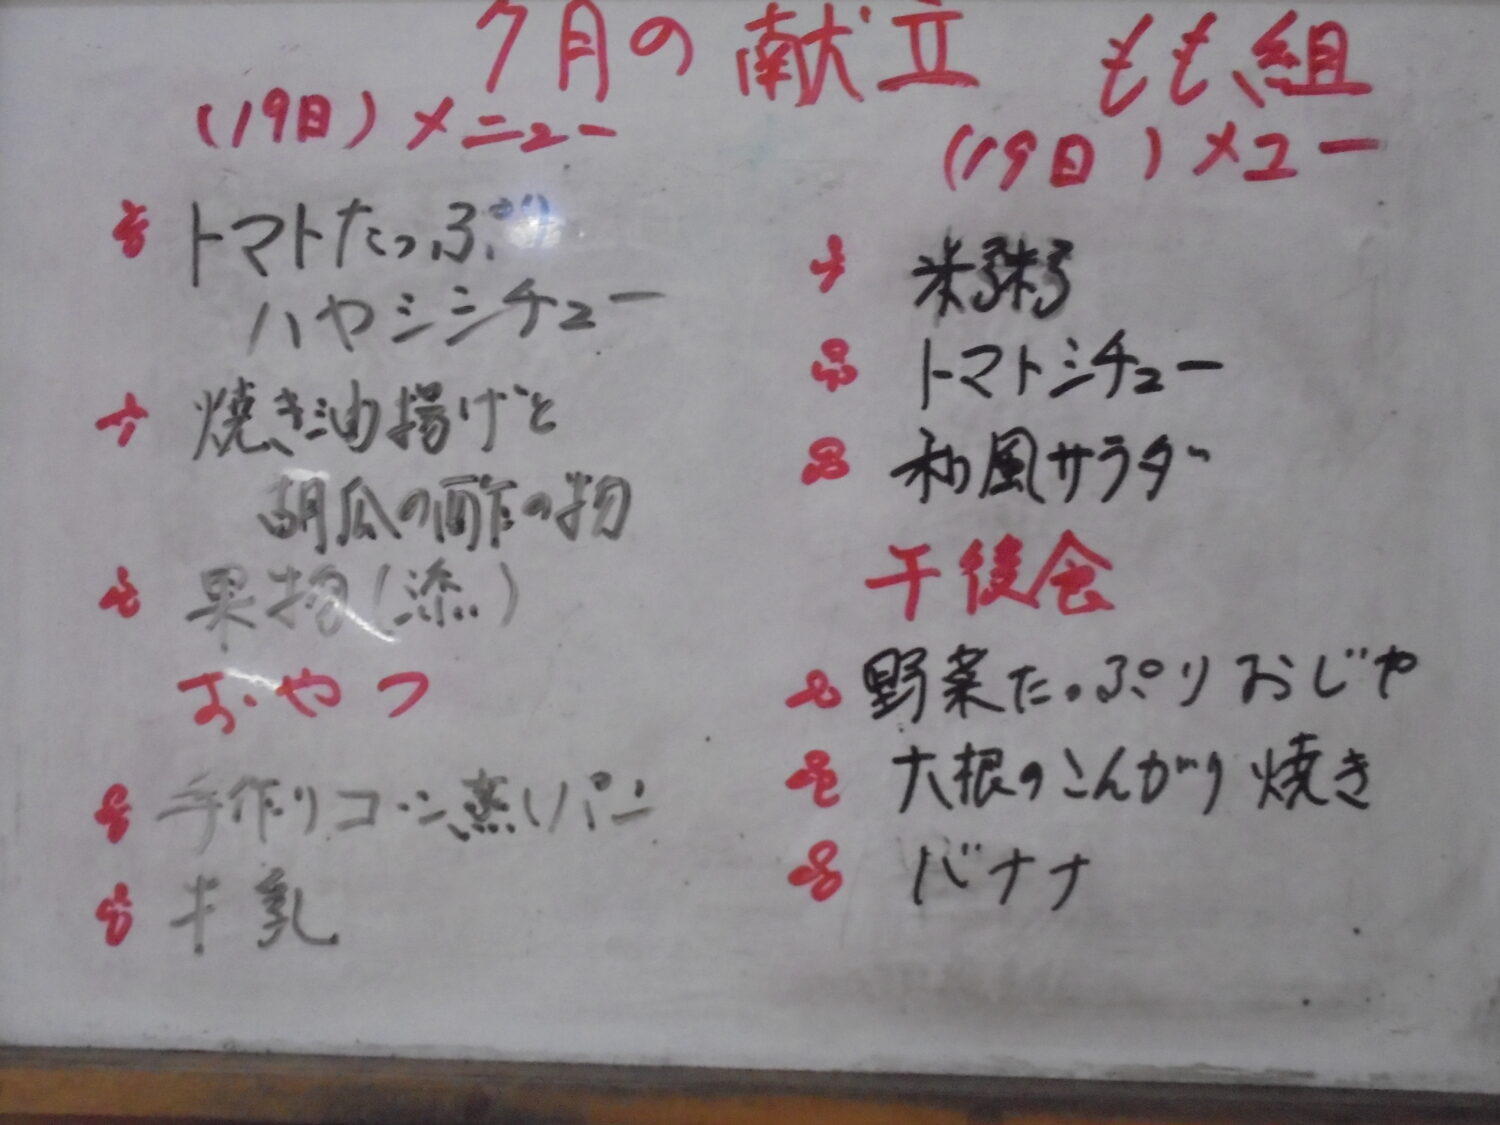 7月の献立 もも組
(19日)メニュー
トマトたっぷり
ハヤシシチュー
焼き油揚げと
胡瓜の酢の物
果物()
おやつ
手作りコーン蒸しパン
牛乳
(19日)メユー
米粥
トマトシチュー
和風サラダ
午後食
野菜たっぷりおじや
大根のこんがり焼き
バナナ